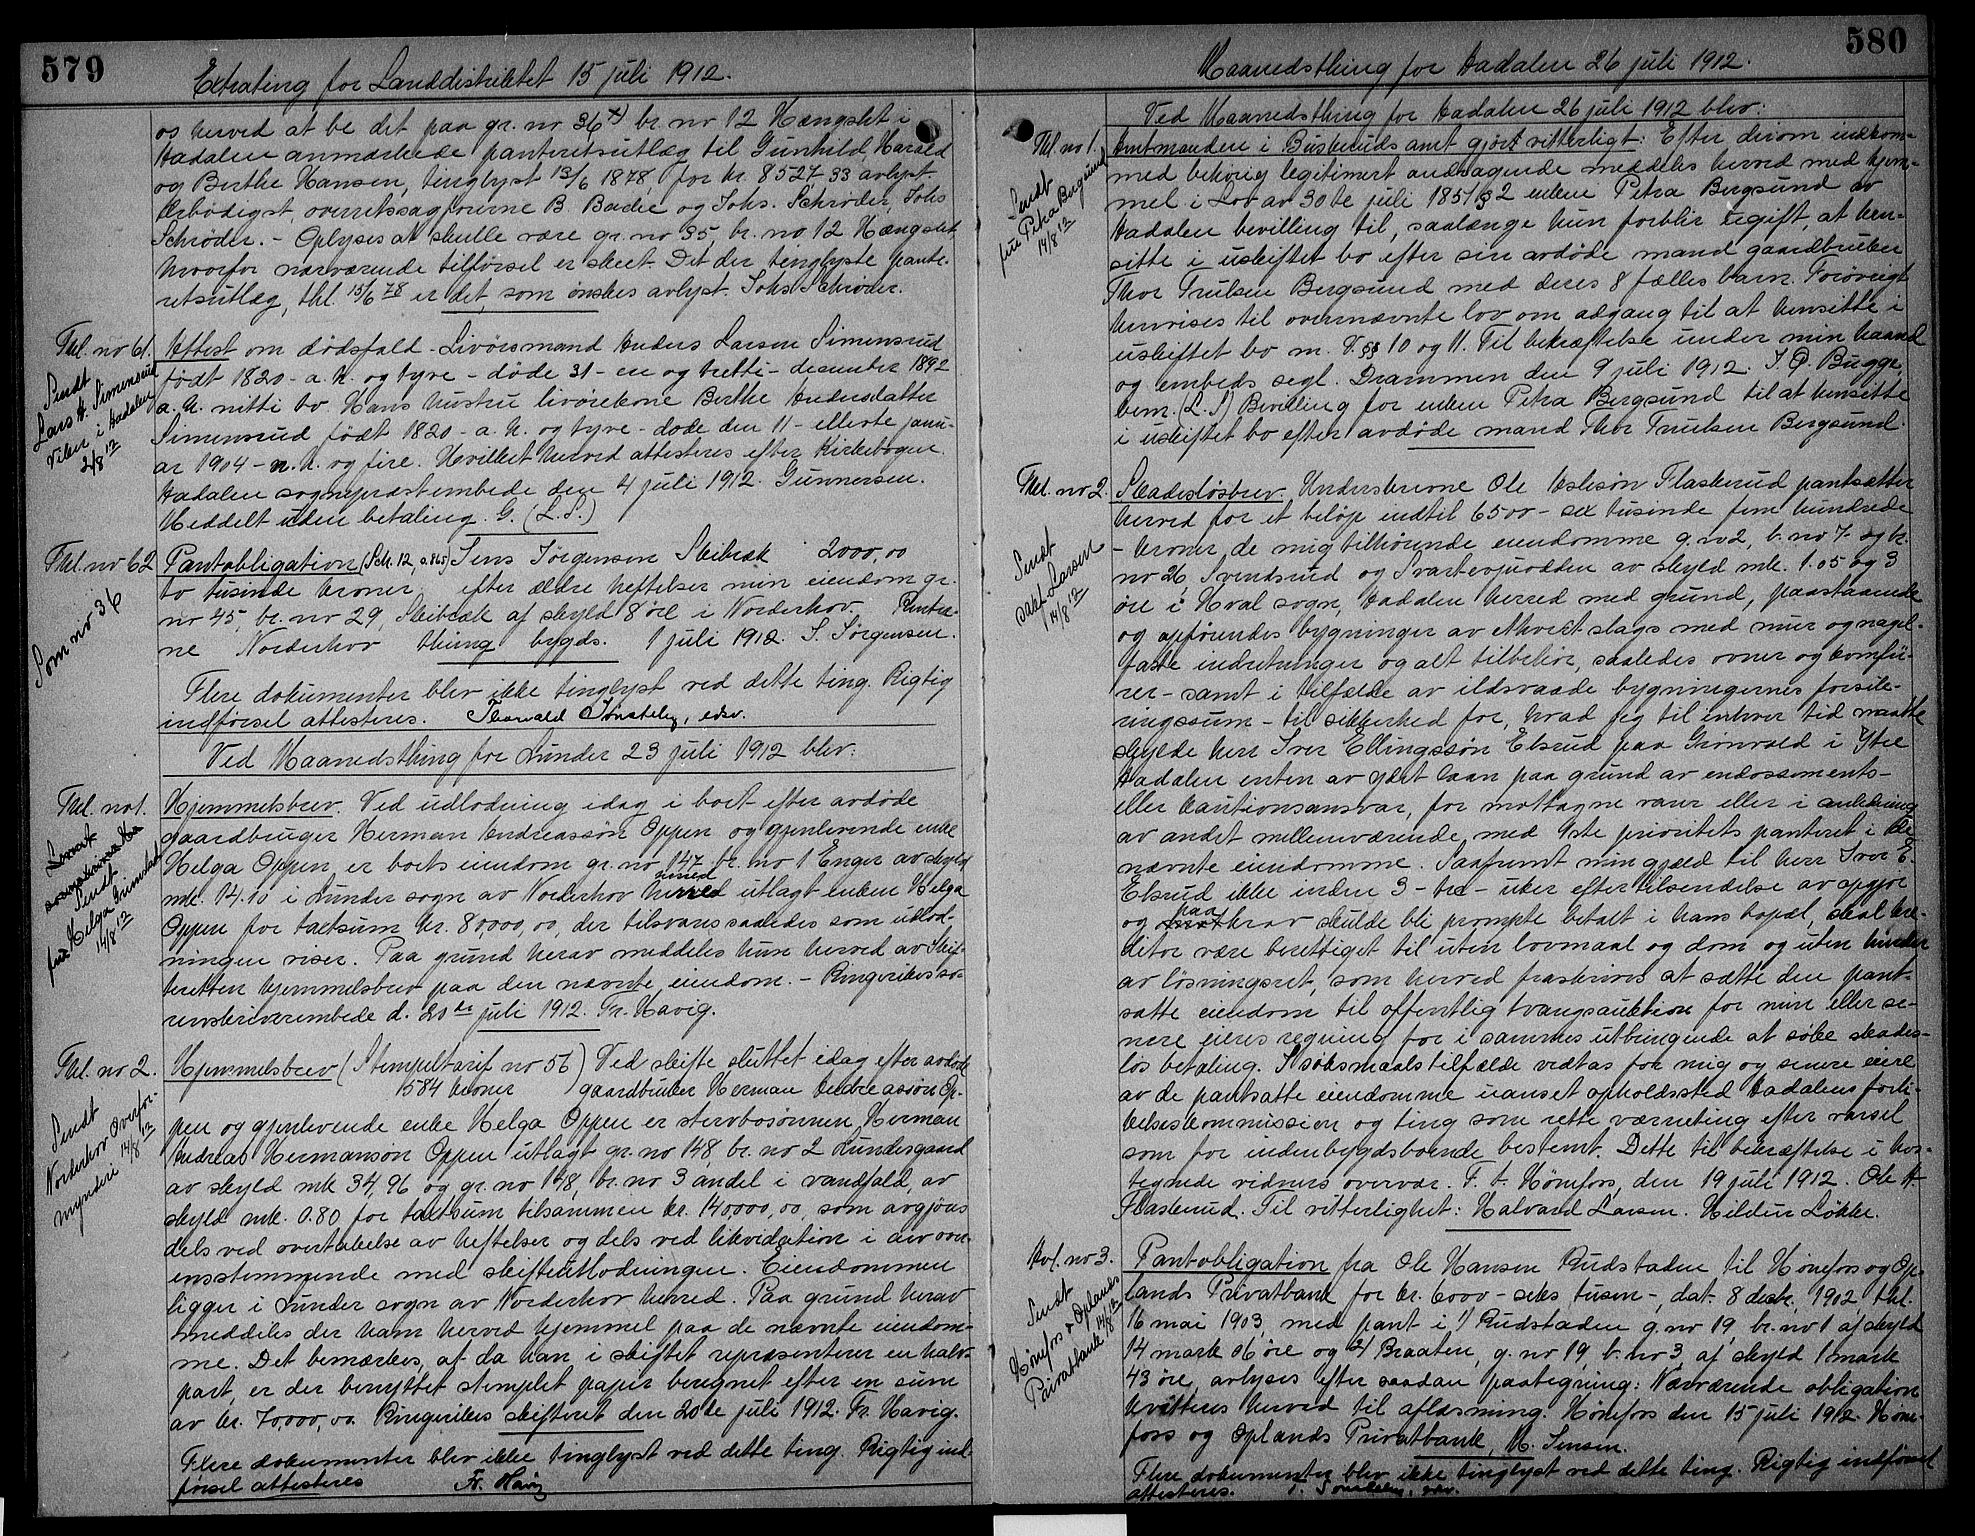 579
Extrating for Landdistriktet 15 juli 1912.
os herved at be det paa gr. nr 36 x) br. nr 12 Hængslet i
Aadalen anmærkede panteretsutlæg til Gunhild, Harald
og Berthe Hansen, tinglyst 13/6 1878, for kr. 8527-33 avlyst.
Ærbødigst, overretssagførerne B. Badie og Johs. Schrøder, Johs
Schrøder. - Oplyses at skulle være gr. no 35, br. no 12 Hængslet,
hvorfor nærværende tilførsel er skeet. Det der tinglyste pante-
retsutlæg, thl. 15/6 78 er det, som ønskes avlyst. Johs. Schrøder.
Thl. no 61.
Sendt
Lars A. Simensrud
Viker i Aadalen
2/8 12
Attest om dødsfald - Livørsmand Anders Larsen Simensrud
født 1820 - a. h. og tyve - døde 31 - en og tretti - december 1892
a. h. nitti to. Hans hustru livørskone Berthe Andersdatter
Simensrud født 1820 - a. h. og tyve - døde den 11 - ellevte janu-
ar 1904 - n. h. og fire. Hvilket herved attesteres efter Kirkebogen.
Aadalen sognepræstembede den 4 juli 1912. Gunnersen.
Meddelt uden betaling. G. (L. S.)
Thl. no 62
Som no 36
Pantobligation (Sch. 12, a. 865) Jens Jørgensen Skibæk 2000,00
to tusinde kroner efter ældre heftelser min eiendom gr.
no 45, br. no 29, Skibæk af skyld 8 øre i Norderhov. Renter-
ne Norderhov thing bygds. 1 juli 1912. J. Jørgensen.
Flere dokumenter blev ikke tinglyst ved dette ting. Rigtig
indførsel attesteres. Thorvald Tønsteby, edsv.
Ved Maanedsthing for Lunder 23 juli 1912 blev:
Thl. no 1.
Sendt
Sendt
fru Helga Grimstad
14/8 12
Hjemmelsbrev. Ved udlodning idag i boet efter avdøde
gaardbruger Herman Andreassøn Oppen og gjenlevende enke
Helga Oppen er boets eiendom gr. no 147 br. no 1 Enger av skyld
mk. 14.10 i Lunder sogn av Norderhov herred utlagt enken Helga
Oppen for taktsum kr. 80000,00, der tilsvares saaledes som udlod-
ningen viser. Paa grund herav meddeles hun herved av Skif-
teretten hjemmelsbrev paa den nævnte eiendom. - Ringerikes so-
renskriverembede d. 20de juli 1912. Fr. Havig.
Thl. no 2.
Sendt
Norderhov Overfor-
mynderi 14/8 12
Hjemmelsbrev (Stempeltarif no 56) Ved skifte sluttet idag efter avdøde
1584 kroner gaardbruker Herman Andreassøn Op-
pen og gjenlevende enke Helga Oppen er stervbosønnen Herman
Andreas Hermansøn Oppen utlagt gr. no 148, br. no 2 Lundesgaard
av skyld mk 34,96 og gr. no 148, br. no 3 andel i vandfald, av
skyld mk. 0.80 for taktsum tilsammen kr. 140000,00, som avgjøres
dels ved overtakelse av heftelser og dels ved likvidation i arv over-
ensstemmende med skifteutlodningen. Eiendommen
ligger i Lunder sogn av Norderhov herred. Paa grund herav
meddeles der ham herved hjemmel paa de nævnte eiendom-
me. Det bemærkes, at da han i skiftet repræsenterer en halv-
part, er der benyttet stemplet papir beregnet efter en sum
av kr. 70,000,00. Ringerikes skifteret den 20de juli 1912. Fr. Havig.
Flere dokumenter blev ikke tinglyst ved dette ting. Rigtig ind-
førsel attesteres Fr. Havig
580
Maanedsthing for Aadalen 26 juli 1912.
Ved Maanedsthing for Aadalen 26 juli 1912 blev:
Thl. no 1.
Sendt
fru Petra Bergsund
14/8 12
Amtmanden i Buskeruds amt gjør vitterligt: Efter derom indkom-
med behørig legitimert andragende meddeles herved med hjem-
mel i Lov av 30te juli 1851 § 2 enken Petra Bergsund av
Aadalen bevilling til, saalænge hun forblir ugift, at hen-
sitte i uskiftet bo efter sin avdøde mand gaardbruker
Thor Trulsen Bergsund med deres 8 fælles barn. Forøvrigt
henvises til ovennævnte lov om adgang til at hensitte i
uskiftet bo m. V. §§ 10 og 11. Til bekræftelse under min haand
og embeds segl. Drammen den 9 juli 1912. J. P. Bugge,
bem. (L. S) Bevilling for enken Petra Bergsund til at hensitte
i uskiftet bo efter avdøde mand Thor Trulsen Bergsund.
Thl. no 2.
Sendt
sakf. Larsen
14/8 12
Skadesløsbrev. Underskrevne Ole Asleson Flaskerud pantsætter
herved for et beløp indtil 6500 - sex tusinde fem hundrede
- kroner, de mig tilhørende eiendomme g. no 2, b. no 7 og br.
no 26, Svendsrud og Svartevjuodden av skyld mk. 1.05 og 3
øre i Hval sogn, Aadalen herred med grund, paastaaende
og opførendes bygninger av ethvert slags med mur og nagl-
faste indretninger og alt tilbehør, saaledes ovner og komfu-
rer - samt i tilfælde av ildsvaade bygningernes forsik-
ringssum - til sikkerhed for, hvad jeg til enhver tid maatte
skylde herr Iver Ellingssøn Elsrud paa Grønvold i Ytre
Aadalen enten av gjort laan paa grund av endossements-
eller kautionsansvar, for mottagne varer eller i anledning
av andet mellemværende, med 1ste prioritets panteret i de
nævnte eiendomme. Saafremt min gjæld til herr Iver E.
Elsrud ikke inden 3 - tre - uker efter tilsendelse av opgjør
og paakrav skulde bli prompte betalt i hans bopæl, skal kre-
ditor være berettiget til uten lovmaal og dom og uten hinder
av løsningsret, som herved fraskrives at sætte den pant-
satte eiendom til offentlig tvangsauktion for min eller se-
nere eieres regning for i sammes utbringende at søke skades-
løs betaling. I søksmaalstilfælde vedtas for mig og senere eiere
av de pantsatte eiendomme uanset opholdssted Aadalens forli-
kelseskommission og ting som rette værneting efter varsel
som for indenbygdsboende bestemt. Dette til bekræftelse i hos-
tegnede vidners overvær. F. t. Hønefos, den 19 juli 1912. Ole A.
Flaskerud. Til vitterlighet: Halvard Larsen. Hildur Løkke.
Avl. no 3.
Sendt
Hønefos & Oplands
Privatbank 14/8 12
Pantobligation fra Ole Hansen Rudstaden til Hønefos og Op-
lands Privatbank for kr. 6000 - seks tusen -, dat. 8 decbr. 1902, thl.
16 mai 1903, med pant i 1/ Rudstaden g. no 19, br. no 1 af skyld
14 mark 06 øre og 2/ Braaten, g. no 19, b. no 3, af skyld 1 mark
43 øre, avlyses efter saadan paategning: Nærværende obligation
kvitteres herved til aflæsning. Hønefos den 15 juli 1912. Høne-
fos og Oplands Privatbank, M. Jensen.
Flere dokumenter blev ikke tinglyst ved dette ting. Rigtig indførsel
attesteres. T. Tønsteby, edsv.